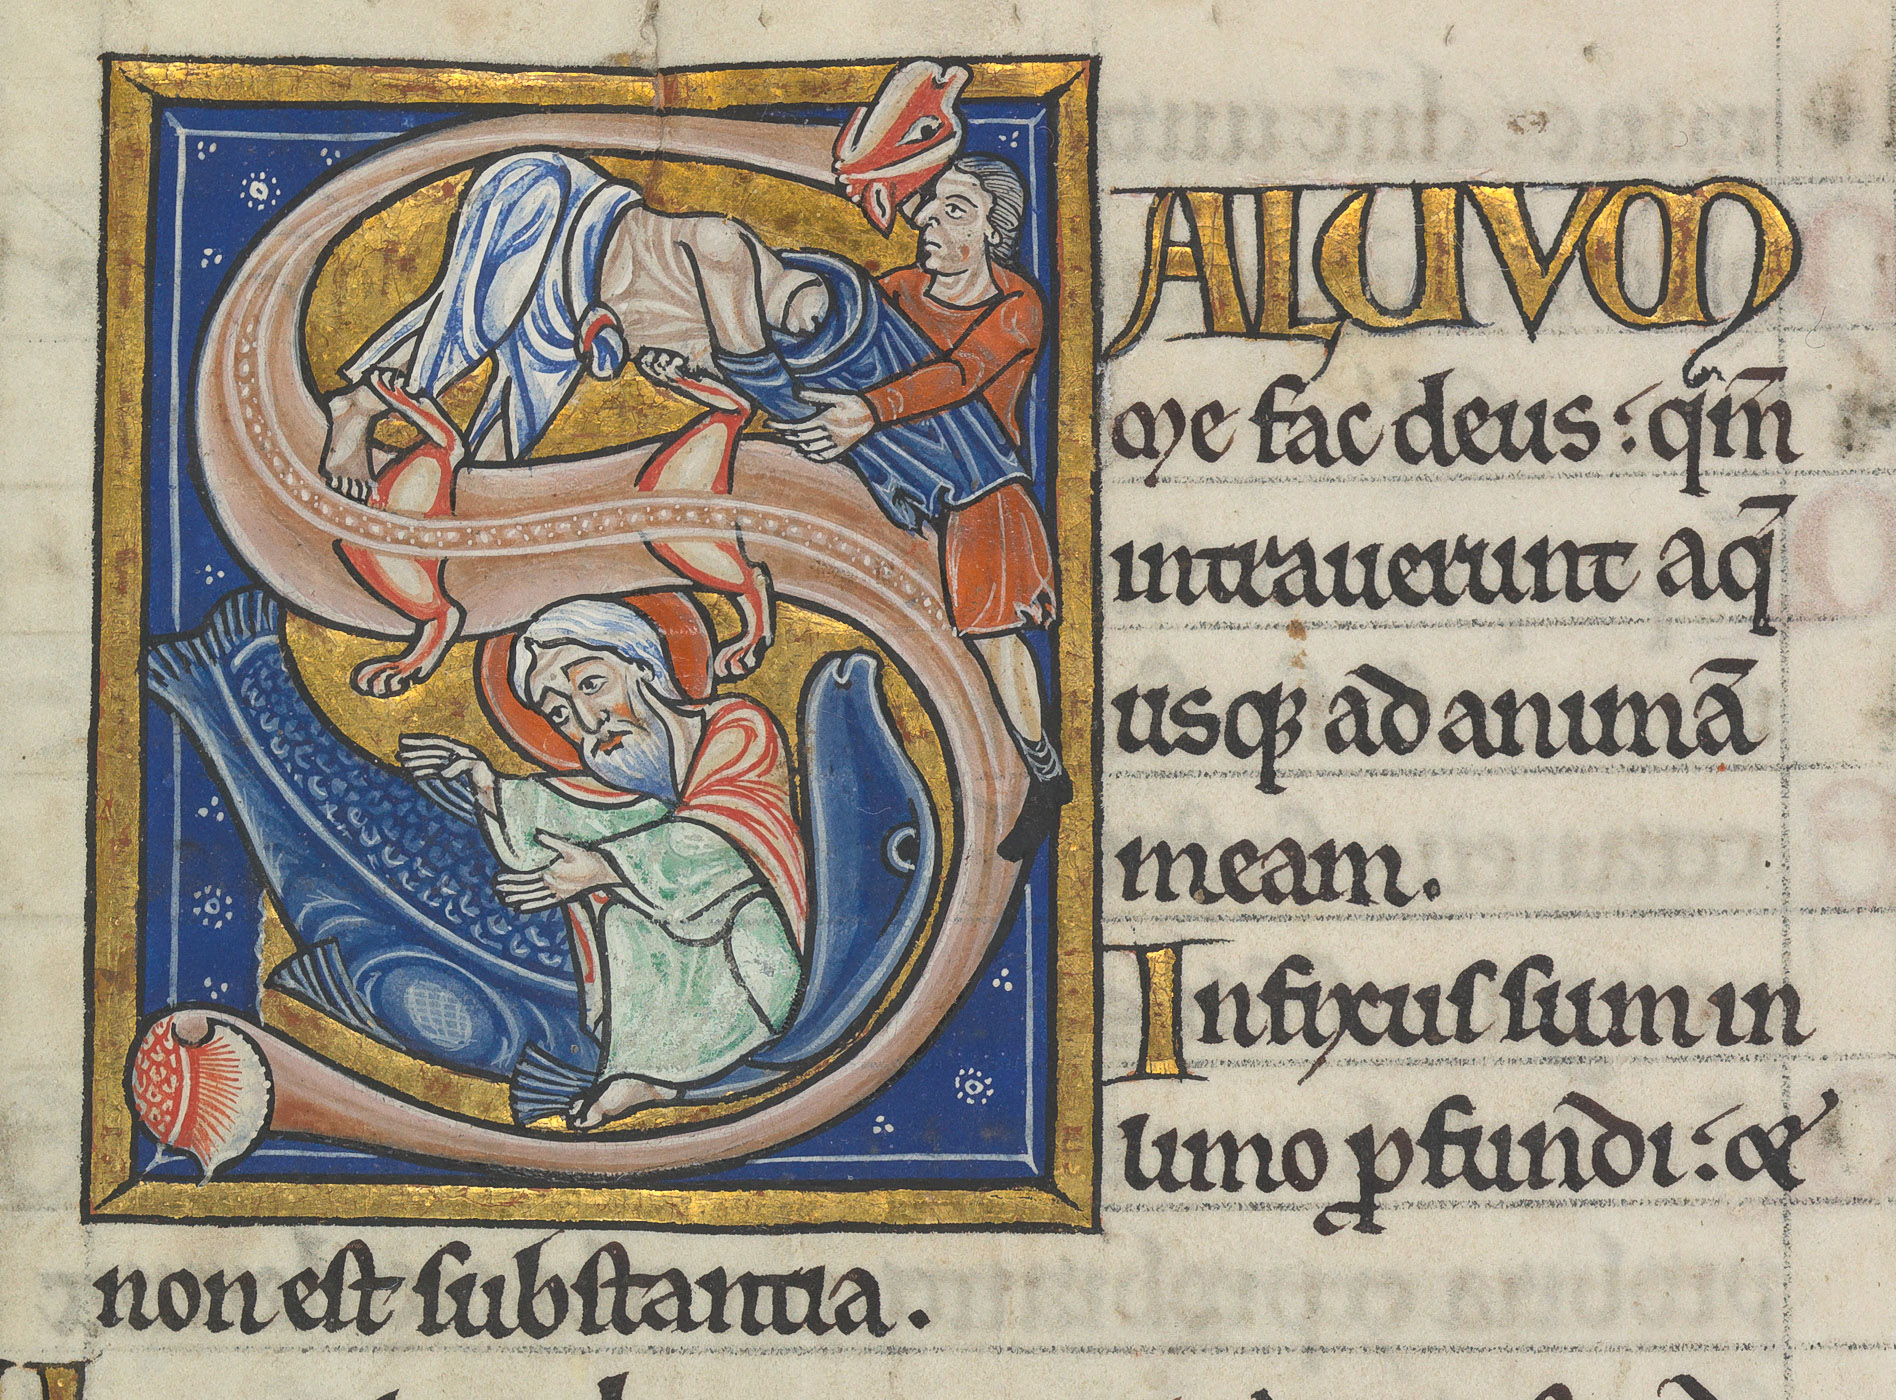 SALUUM
me fac deus: qm̄
intrauerunt aq̄
usq; ad animā
meam.
Infixus sum in
limo ꝓfundi: &
non est substantia.